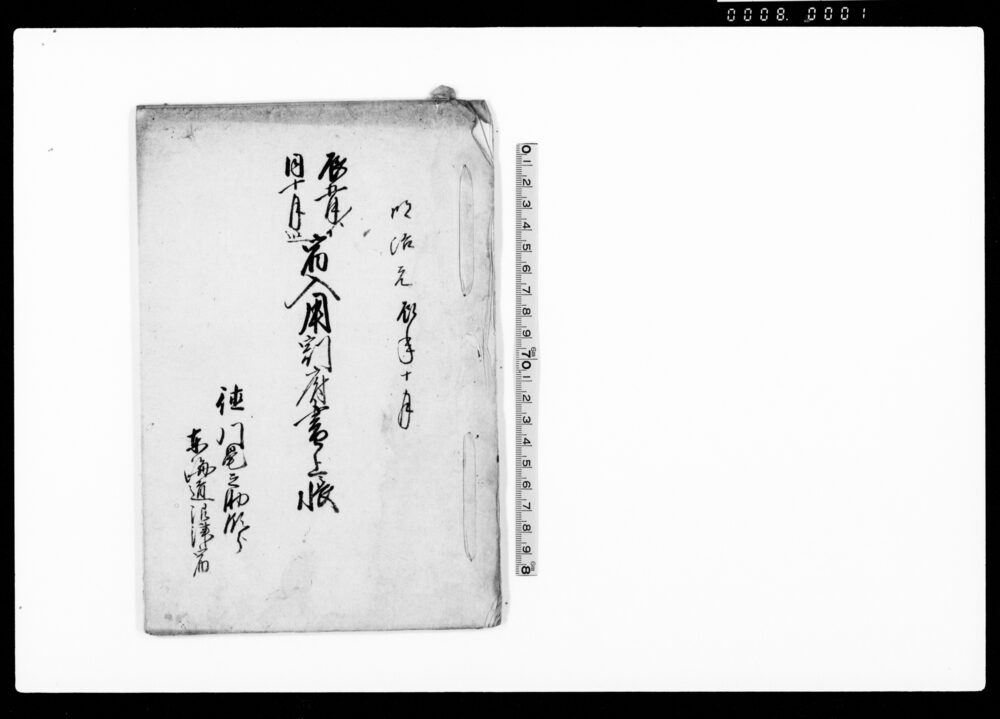 0008. 0001
明治元辰年十月
辰
同十月迄
宿入用割府書上帳
徳川亀之助領分
東海道沼津宿
0 1 2 3 4 5 6 7 8 9 10 1 2 3 4 5 6 7 8 9 8